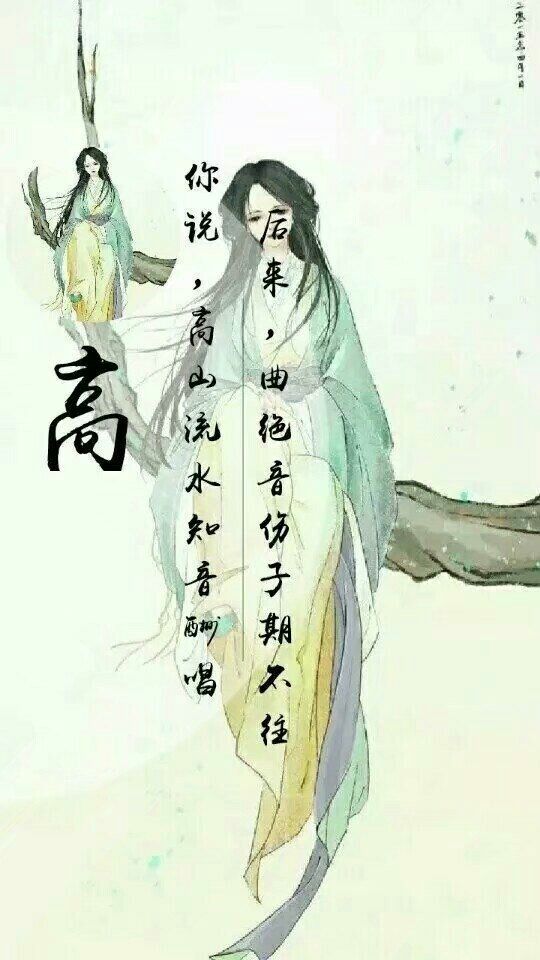 二零一五年四月一日
后来，曲绝音伤子期不往
你说，高山流水知音酬唱
高